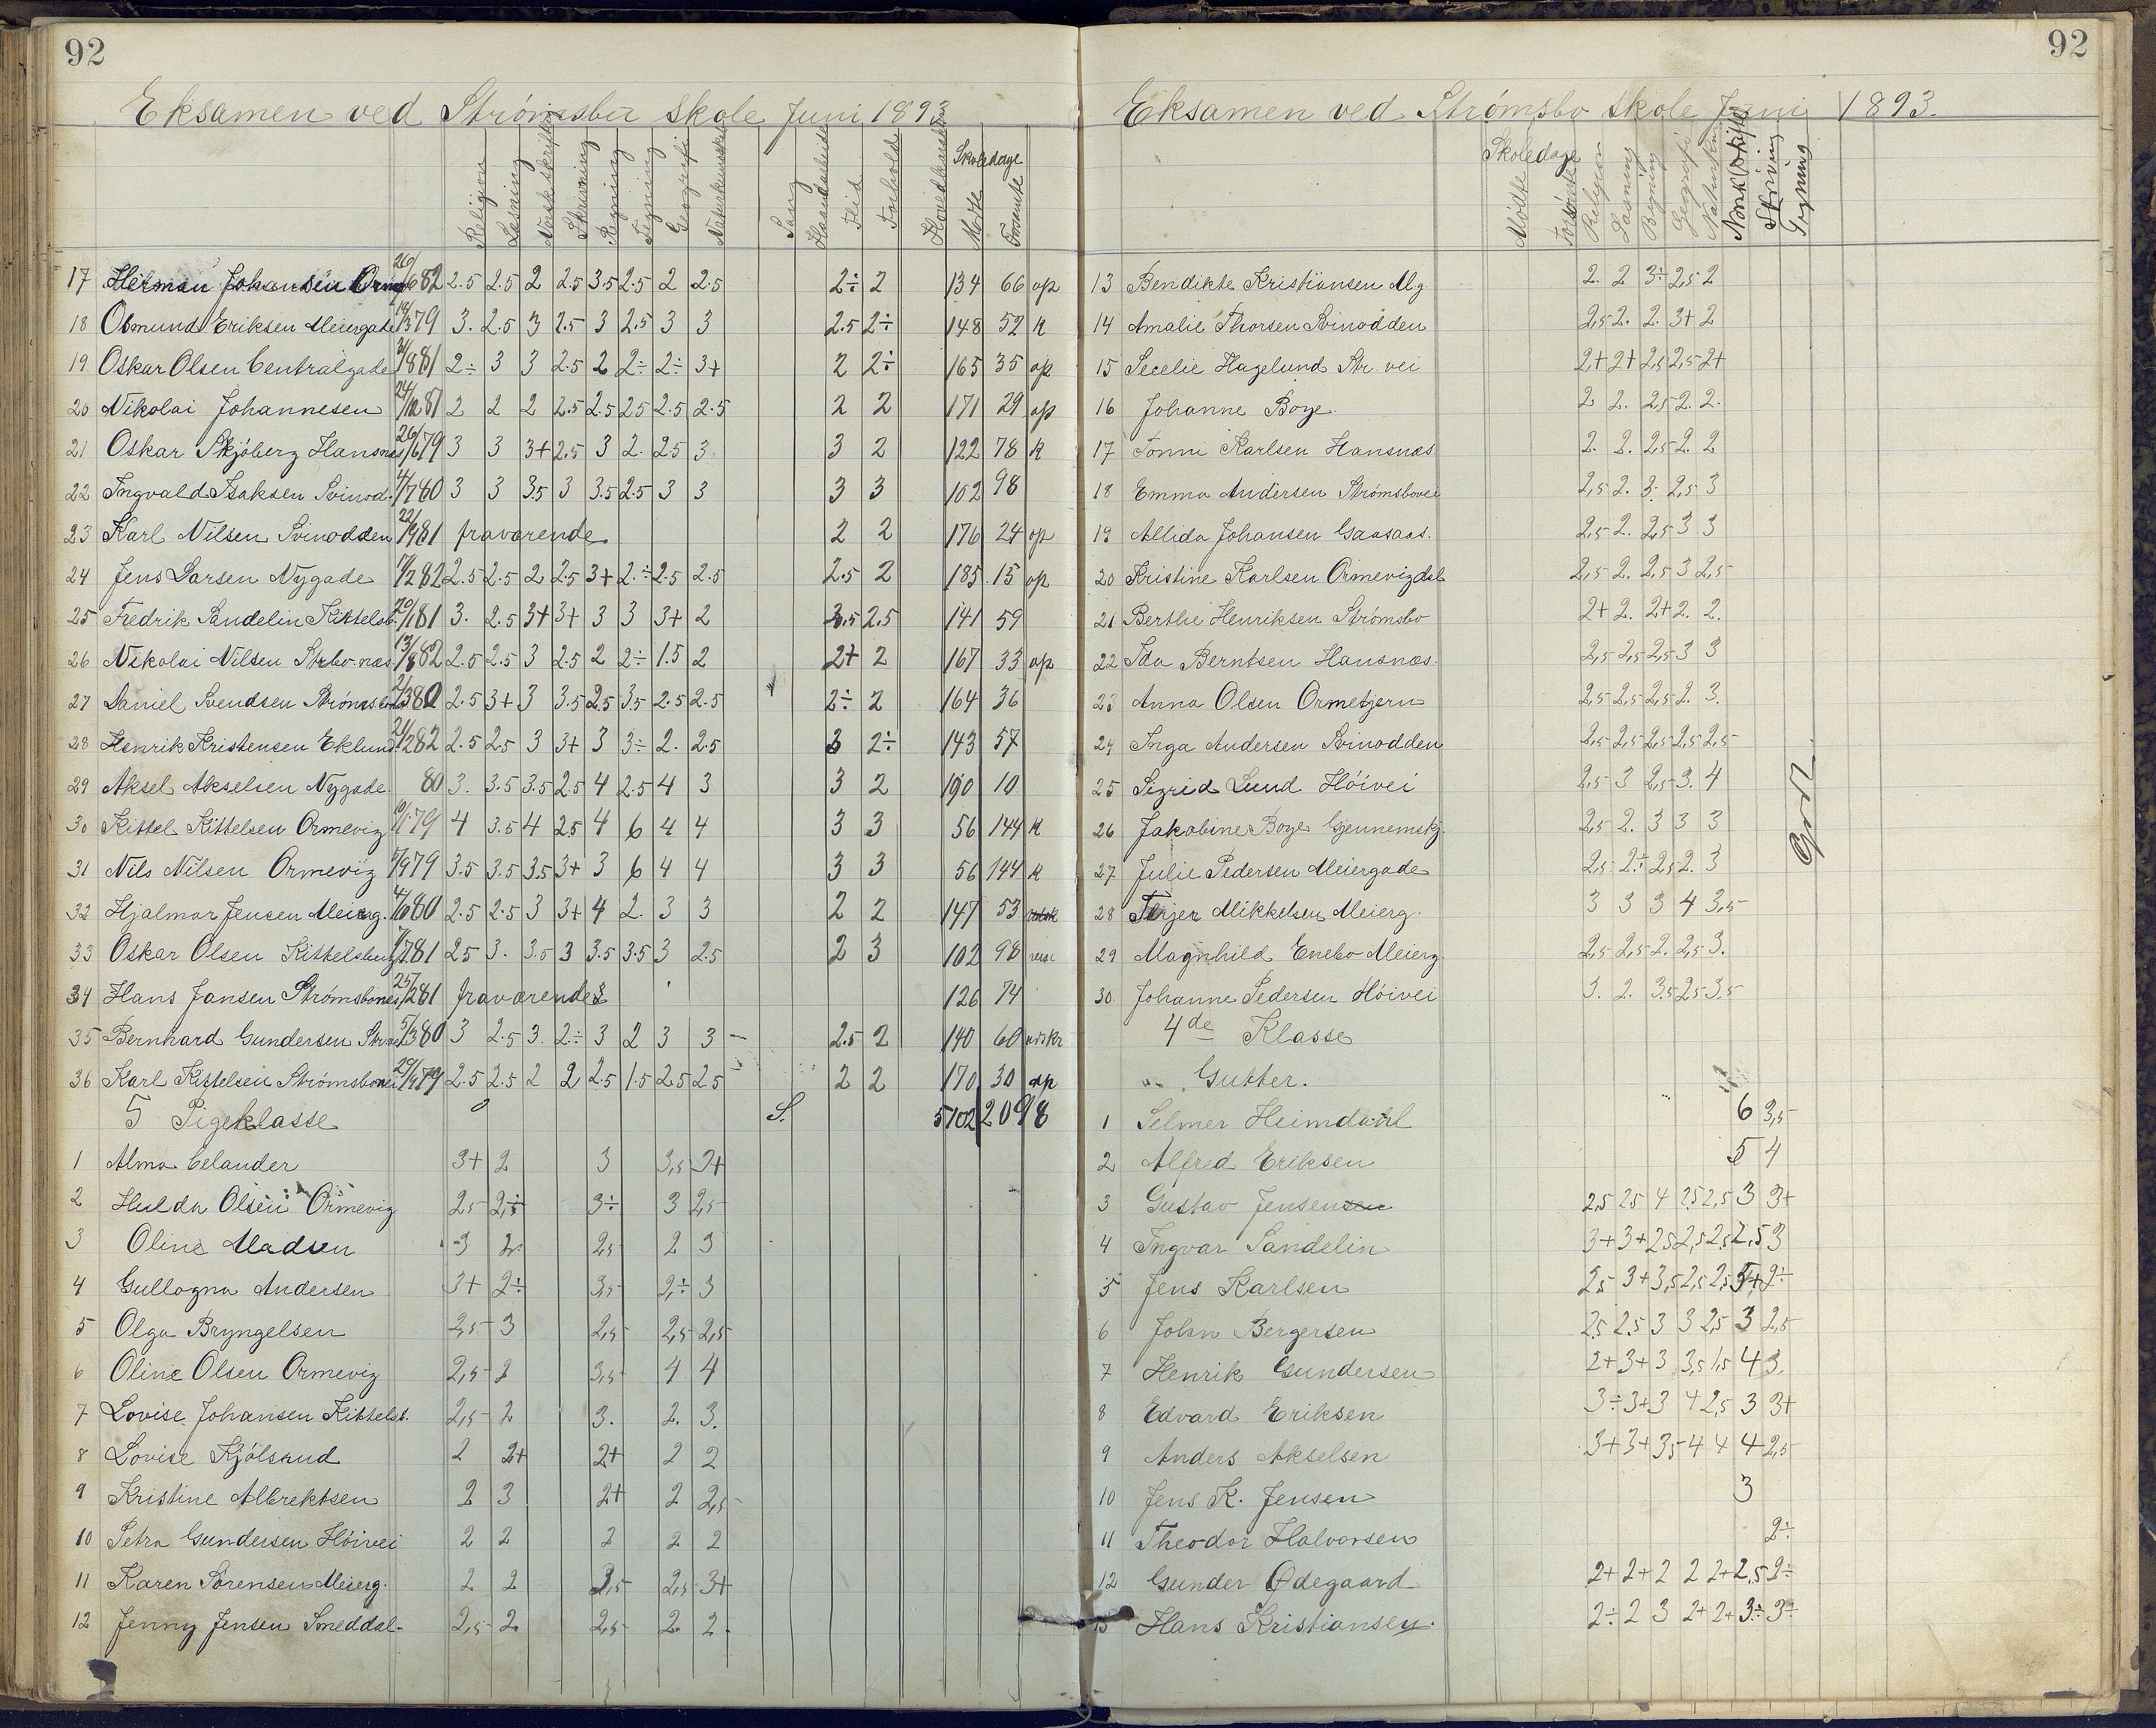 92
Eksamen ved Strømsbu skole Juni 1893
Religion Læsning Norsk skriftlig Skrivning Regning Tegning Geografi Naturkundskab Sang Haandarbeide Flid Forhold Hovedkarakter Skoledage Mødte Forsømte
17 Herman Johansen 26/6 82 2.5 2.5 2 2.5 3.5 2.5 2 2.5 2÷ 2 134 66 op
18 Osmund Eriksen Meiergade 79 3. 2.5 3 2.5 3 2.5 3 3 2.5 2÷ 148 52 k
19 Oskar Olsen Centralgade 81 2÷ 3 3 2.5 2 2÷ 2÷ 3+ 2 2÷ 165 35 op
20 Nikolai Johannesen 81 2 2 2 2.5 2.5 25 2.5 2.5 2 2 171 29 op
21 Oskar Skjöberg Hansnes 26/6 79 3 3 3+ 2.5 3 2. 2.5 3 3 2 122 78 k
22 Ingvald Isaksen Svinod. 80 3 3 3.5 3 3.5 2.5 3 3 3 3 102 98
23 Karl Nilsen Svinodden 22/9 81 fraværende 2 2 176 24 op
24 Jens Larsen Nygade 82 2.5 2.5 2 2.5 3+ 2.÷ 2.5 2.5 2.5 2 185 15 op
25 Fredrik Sandelin Kittelsb. 81 3. 2.5 3+ 3+ 3 3 3+ 2 3.5 2.5 141 59
26 Nikolai Nilsen Strbo.næs 13/8 82 2.5 2.5 3 2.5 2 2÷ 1.5 2 2+ 2 167 33 op
27 Daniel Svendsen Strømsbo 80 2.5 3+ 3 3.5 2.5 3.5 2.5 2.5 2÷ 2 164 36
28 Henrik Kristensen Eklund 21/2 82 2.5 2.5 3 3+ 3 3÷ 2. 2.5 3 2÷ 143 57
29 Aksel Akselsen Nygade 80 3. 3.5 3.5 2.5 4 2.5 4 3 3 2 190 10
30 Kittel Kittelsen Ormevig 79 4 3.5 4 2.5 4 6 4 4 3 3 56 144 k
31 Nils Nilsen Ormevig 79 3.5 3.5 3.5 3+ 3 6 4 4 3 3 56 144 k
32 Hjalmar Jensen Meierg. 80 2.5 2.5 3 3+ 4 2. 3 3 2 2 147 53
33 Oskar Olsen Kittelsbugt 81 25 3. 3.5 3 3.5 3.5 3 2.5 2 3 102 98
34 Hans Jansen Strømsbones 25/2 81 fraværende 126 74
35 Bernhard Gundersen 5/3 80 3 2.5 3. 2÷ 3 2 3 3 – 2.5 2 140 60 udskr
36 Karl Kittelsen Strømsbovei 29/9 79 2.5 2.5 2 2 2.5 1.5 2.5 2.5 2 2 170 30 op
5 Pigeklasse S. 5102 2098
1 Alma Celander 3+ 2 3 3,5 3+
2 Hulda Olsen Ormevig 2,5 2,÷ 3÷ 3 2,5
3 Oline Madsen 3 2. 2,5 2 3
4 Gullogna Andersen 3+ 2÷ 3,5 2,÷ 3
5 Olga Bryngelsen 2,5 3 2,5 2,5 2,5
6 Oline Olsen Ormevig 2,5 2 3,5 4 4
7 Lovise Johansen Kittelsb. 2,5 2 3. 2. 3.
8 Lovise Kjölsrud 2 2+ 2+ 2 2
9 Kristine Albrektsen 2 3 2+ 2 2,5
10 Petra Gundersen Höivei 2 2 2 2 2
11 Karen Sörensen Meierg. 2 2 2,5 2,5 3+
12 Jenny Jensen Smeddal. 2,5 2 2,5 2. 2.
92
Eksamen ved Strømsbo skole Juni 1893.
Skoledage Mödte Forsömte Religion Læsning Regning Geografi Naturkun Norsk Skriftl Skrivning Tegning
13 Bendikte Kristiansen Mg. 2. 2 3÷ 2,5 2
14 Amalie Thorsen Svinodden 2,5 2. 2. 3+ 2
15 Secelie Hagelund Str. vei 2,+ 2+ 2,5 2,5 2+
16 Johanne Boye. 2 2. 2,5 2. 2.
17 Tonni Karlsen Hansnæs 2. 2. 2,5 2. 2
18 Emma Andersen Strömsbovei 2,5 2. 3. 2,5 3
19 Allida Johansen Gaasaas. 2,5 2. 2,5 3 3
20 Kristine Karlsen Ormevigdal 2,5 2. 2,5 3 2,5
21 Berthe Henriksen Strömsbo 2+ 2. 2+ 2. 2.
22 Ida Berntsen Hansnæs. 2,5 2,5 2,5 3 3
23 Anna Olsen Ormetjern 2,5 2,5 2,5 2. 3.
24 Inga Andersen Svinodden 2,5 2,5 2,5 2,5 2,5
25 Sigrid Lund Höivei 2,5 3 2,5 3. 4
26 Jakobine Boye Gjennemskj. 2,5 2. 3 3 3
27 Julie Pedersen Meiergade 2,5 2.÷ 2,5 2. 3
28 Terjer Mikkelsen Meierg. 3 3 3 4 3,5
29 Magnhild Enebo Meierg. 2,5 2,5 2. 2,5 3.
30. Johanne Pedersen Höivei 3. 2. 3.5 2.5 3.5
4de Klasse
Gutter.
1 Selmer Heimdahl 6 3,5
2 Alfred Eriksen 5 4
3 Gustav Jensen 2,5 25 4 25 2,5 3 3+
4 Ingvar Sandelin 3+ 3+ 25 2,5 2,5 2,5 3
5 Jens Karlsen 25 3+ 3,5 2,5 2,5 5+ 2÷
6 John Bergersen 2.5 2.5 3 3 2,5 3 2,5
7 Henrik Gundersen 2+ 3+ 3 3,5 1,5 4 3.
8 Edvard Eriksen 3÷ 3+ 3 4 2,5 3 3+
9 Anders Akselsen 3+ 3+ 35 4 4 4 2,5
10 Jens K. Jensen 3
11 Theodor Halvorsen 2÷
12 Gunder Ødegaard 2+ 2+ 2 2 2+ 2.5 2÷
13 Hans Kristiansen. 2÷ 2 3 2+ 2+ 3÷ 3÷